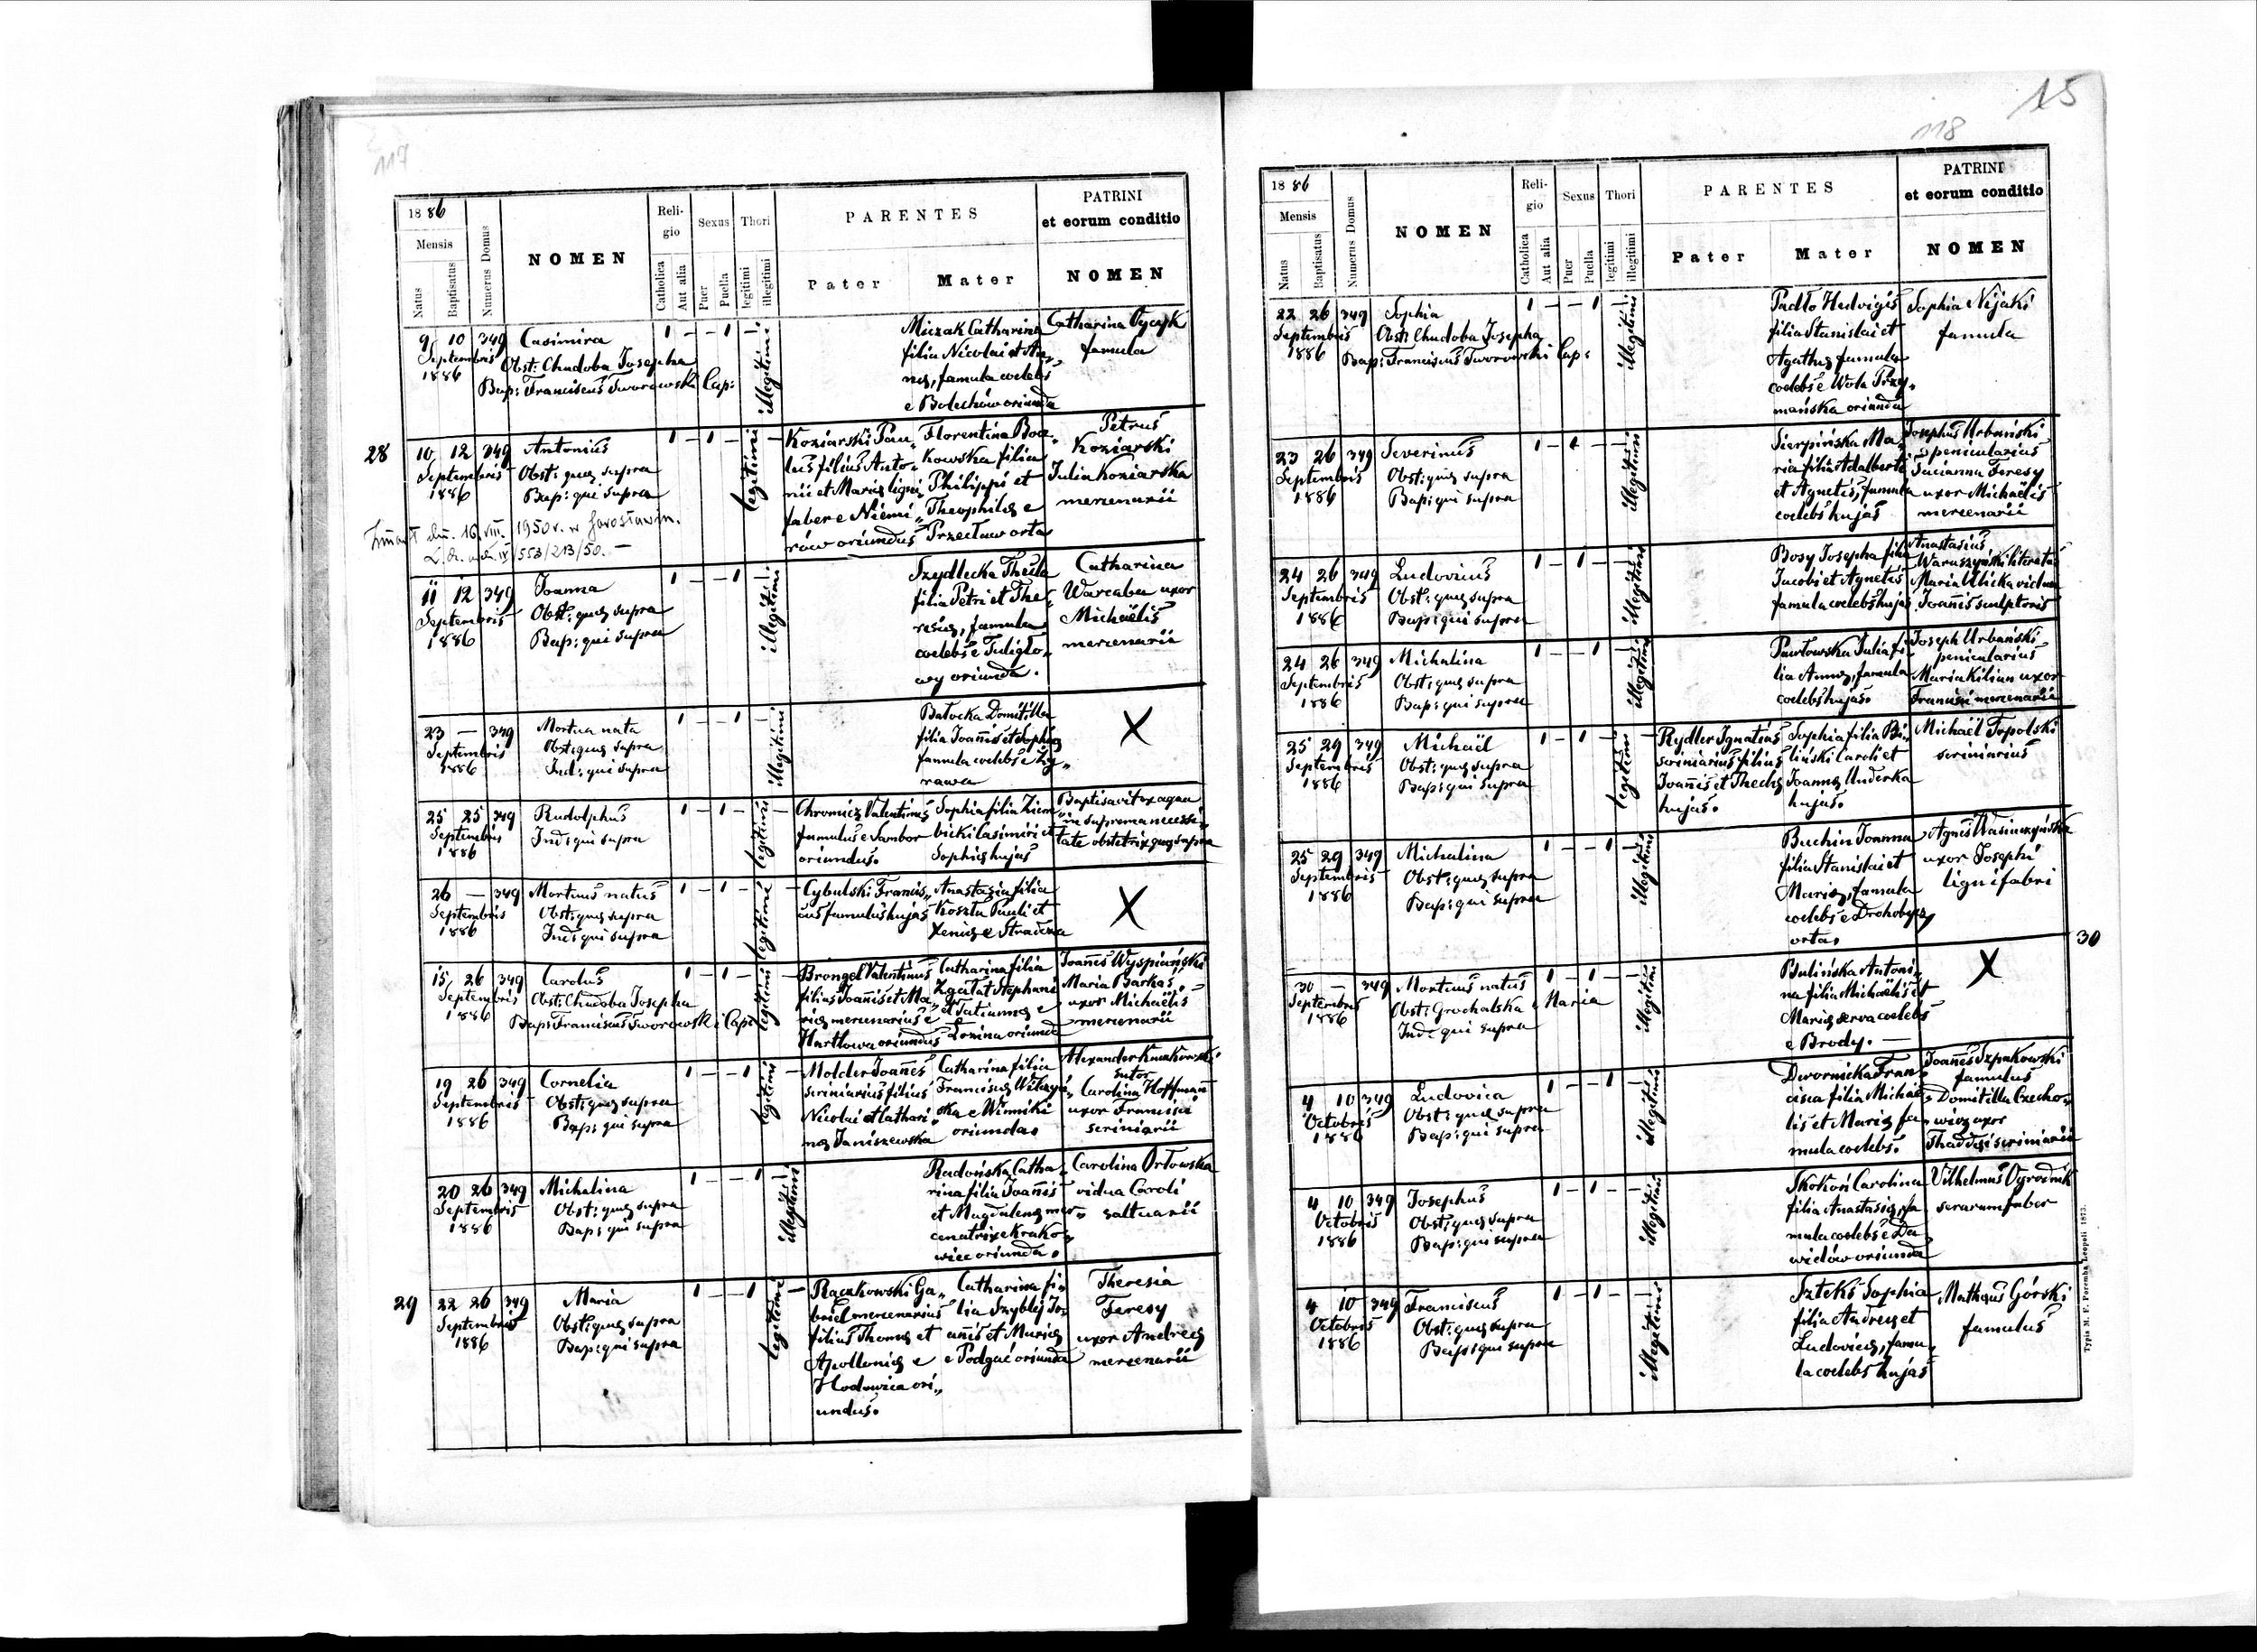 117
1886
Mensis
Natus
Baptisatus
Numerus Domus
NOMEN
Religio
Catholica
Aut alia
Sexus
Puer
Puella
Thori
legitimi
illegitimi
PARENTES
Pater
Mater
PATRINI
et eorum conditio
NOMEN
9 10 349 Casimira 1 – – 1 –
Septembris
1886
Obst: Chudoba Josepha
Bap: Franciscus Tworowski Cap:
illegitimi
Miczak Catharina
filia Nicolai et An„
nae, famula coelebs
e Bolechów oriunda
Catharina
famula
28
10 12 349 Antonius 1 – 1 –
Septembris
1886
Obst: quae supra
Bap: qui supra
Zmarł dn. 16.VIII. 1950 r. w Jarosławiu.
553/213/50. –
legitimi
Koziarski Pau„
lus filius Anto„
nii et Mariae ligni
faber e Niemi„
rów oriundus
Florentina Boa„
kowska filia
Philippi et
Theophilae e
Przecław orta
Petrus
Koziarski
Julia Koziarska
mercenarii
11 12 349 Joanna 1 – – 1 –
Septembris
1886
Obst: quae supra
Bap: qui supra
illegitimi
Szydlecka Thecla
filia Petri et The„
resiae, famula
coelebs e Tuligło„
wy oriunda.
Catharina
Warcaba uxor
Michaëlis
mercenarii
23 – 349 Mortua nata 1 – – 1 –
Septembris
1886
Obst: quae supra
Ind: qui supra
illegitimi
Bałocka Domitilla
filia Joannis et Sophiae
famula coelebs e Ży„
rawa
X
25 25 349 Rudolphus 1 – 1 –
Septembris
1886
Ind: qui supra
legitimi
Chromicz Valentinus
famulus e Sambor
oriundus.
Sophia filia Ziem„
bicki Casimiri et
Sophiae hujas
Baptisavit ex aqua
in suprema necessi„
tate obstetrix quae supra
26 – 349 Mortuus natus 1 – 1 –
Septembris
1886
Obst: quae supra
Ind: qui supra
legitimi
Cybulski Francis„
cus famulus hujas
Anastasia filia
Koszła Pauli et
Xeniae e Stradcza
X
15 26 349 Carolus 1 – 1 –
Septembris
1886
Obst: Chudoba Josepha
Bap: Franciscus Tworowski Cap:
legitimi
Brongel Valentinus
filius Joannis et Ma„
riae mercenarius e
Hartlowa oriundus
Catharina filia
Zgatat Stephani
et Tatianae e
Łozina oriunda
Joannes Wyspiański
Maria Barkas
uxor Michaëlis
mercenarii
19 26 349 Cornelia 1 – – 1 –
Septembris
1886
Obst: quae supra
Bap: qui supra
legitimi
Molder Joannes
scriniarius filius
Nicolai et Cathari„
nae Janiszewska
Catharina filia
Franciscae Wilczyń„
ska e Winniki
oriunda.
Alexander
sutor
Carolina Hoffmann
uxor Francisci
scriniarii
20 26 349 Michalina 1 – – 1 –
Septembris
1886
Obst: quae supra
Bap: qui supra
illegitimi
Radońska Catha„
rina filia Joannis
et Magdalenae mer„
cenatrix e Krako„
wiec oriunda.
Carolina Orłowska
vidua Caroli
saltuarii
29
22 26 349 Maria 1 – – 1 –
Septembris
1886
Obst: quae supra
Bap: qui supra
legitimi
Raczkowski Ga„
briel mercenarius
filius Thomae et
Apolloniae e
Hodowica ori„
undus.
Catharina fi„
lia Szybley Jo„
annis et Mariae
e Podgać oriunda
Theresia
Feresy
uxor Andreae
mercenarii
15
118
1886
Mensis
Natus
Baptisatus
Numerus Domus
NOMEN
Religio
Catholica
Aut alia
Sexus
Puer
Puella
Thori
legitimi
illegitimi
PARENTES
Pater
Mater
PATRINI
et eorum conditio
NOMEN
22 26 349 Sophia 1 – – 1 –
Septembris
1886
Obst: Chudoba Josepha
Bap: Franciscus Tworowski Cap:
illegitimi
Padło Hedvigis
filia Stanislai et
Agathae famula
coelebs e Wola Przy„
mańska oriunda
Sophia Nijaki
famula
23 26 349 Severinus 1 – 1 –
Septembris
1886
Obst: quae supra
Bap: qui supra
illegitimi
Sierpińska Ma„
ria filia Adalberti
et Agnetis, famula
coelebs hujas
Josephus Urbański
penicularius
Feresy
uxor Michaëlis
mercenarii
24 26 349 Ludovicus 1 – 1 –
Septembris
1886
Obst: quae supra
Bap: qui supra
illegitimi
Bosy Josepha filia
Jacobi et Agnetis
famula coelebs hujas
Anastasius
Waruszyński literatus
Maria Ulicka vidua
Joannis sculptoris
24 26 349 Michalina 1 – – 1 –
Septembris
1886
Obst: quae supra
Bap: qui supra
illegitimi
Pawłowska Julia fi„
lia Annae, famula
coelebs hujas.
Joseph Urbański
penicularius
Maria Kilian uxor
Francisci mercenarii
25 29 349 Michaël 1 – 1 –
Septembris
1886
Obst: quae supra
Bap: qui supra
legitimi
Rydler Ignatius
scriniarius filius
Joannis et Theclae
hujas.
Sophia filia Bi„
liński Caroli et
Joannae Underka
hujas.
Michaël Topolski
scriniarius
25 29 349 Michalina 1 – – 1 –
Septembris
1886
Obst: quae supra
Bap: qui supra
illegitimi
Buchin Joanna
filia Stanislai et
Mariae, famula
coelebs e Drohobycz
orta.
Agnes Wasinczyńska
uxor Josephi
ligni fabri
30
30 – 349 Mortuus natus 1 – 1 –
Septembris
1886
Obst: Grochalska Maria
Ind: qui supra
illegitimi
Bulińska Antoni„
na filia Michaëlis et
Mariae serva coelebs
e Brody. –
X
4 10 349 Ludovica 1 – – 1 –
Octobris
1886
Obst: quae supra
Bap: qui supra
illegitimi
Dwornicka Fran„
cisca filia Michaë„
lis et Mariae fa„
mula coelebs.
Joannes Szpakowski
famulus
Domitilla Czecho„
wicz uxor
Thaddaei scriniarii
4 10 349 Josephus 1 – 1 –
Octobris
1886
Obst: quae supra
Bap: qui supra
illegitimi
Skokoń Carolina
filia Anastasiae, fa
mula coelebs e Da„
widów oriunda
Vilhelmus Ogrodnik
serarum faber
4 10 349 Franciscus 1 – 1 –
Octobris
1886
Obst: quae supra
Bap: qui supra
illegitimi
Szteks Sophia
filia Andreae et
Ludovicae, famu„
la coelebs hujas
Mathaeus Górski
famulus
Typis M. F. Poremba Leopoli 1873.